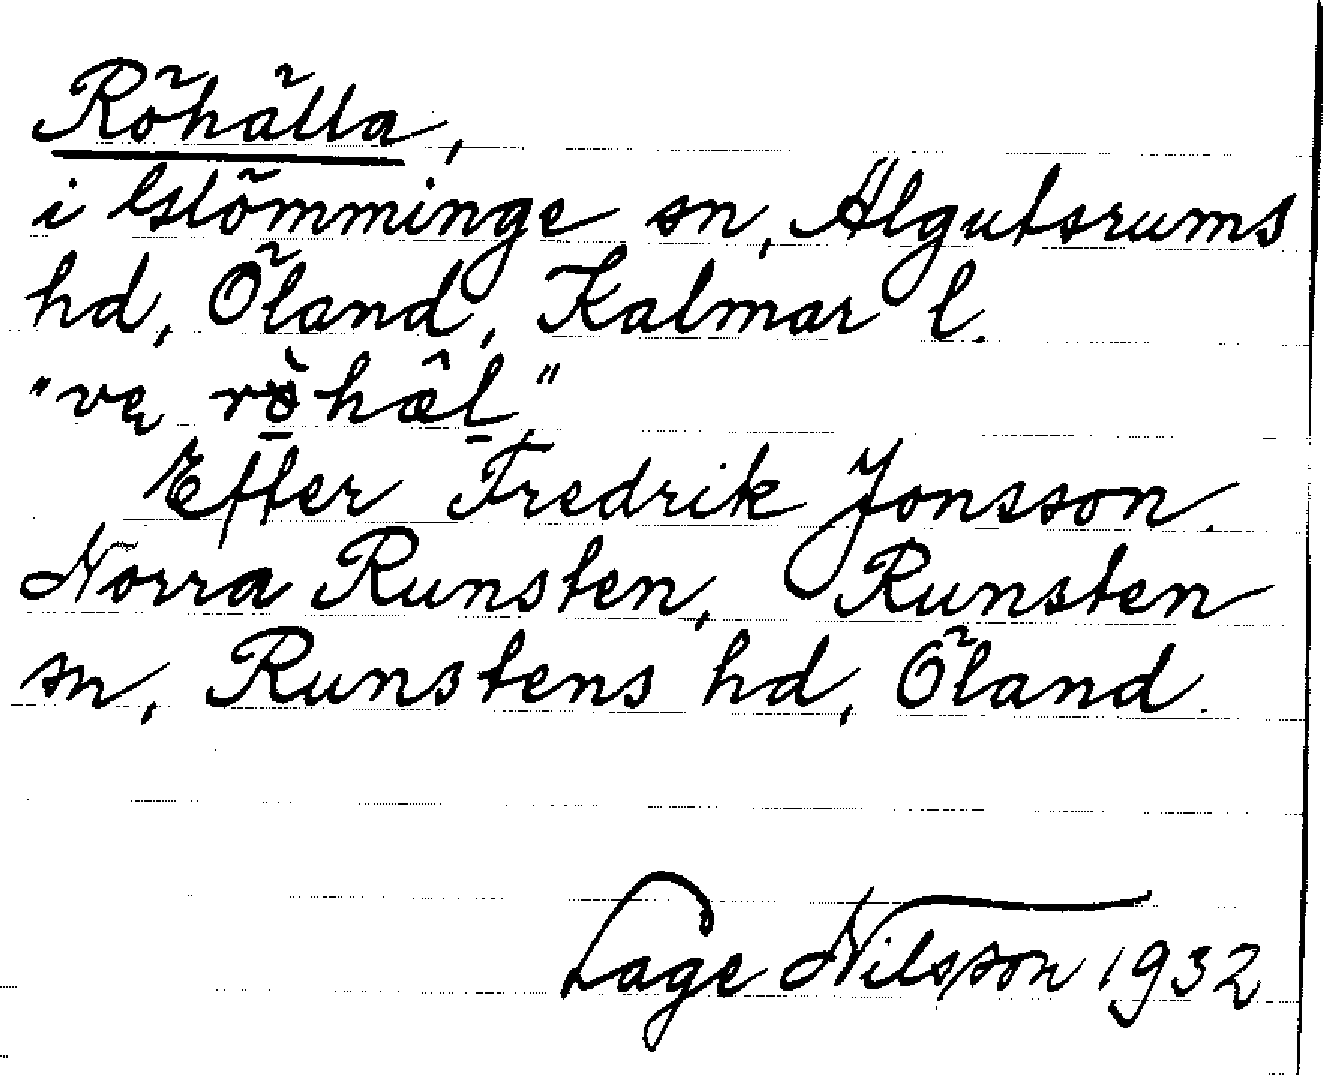 Röhälla,
i Glömminge sn, Algutsrums
hd, Öland, Kalmar l.
"vę
Efter Fredrik Jonsson.
Norra Runsten, Runsten
sn, Runstens hd, Öland.
Lage Nilsson 1932